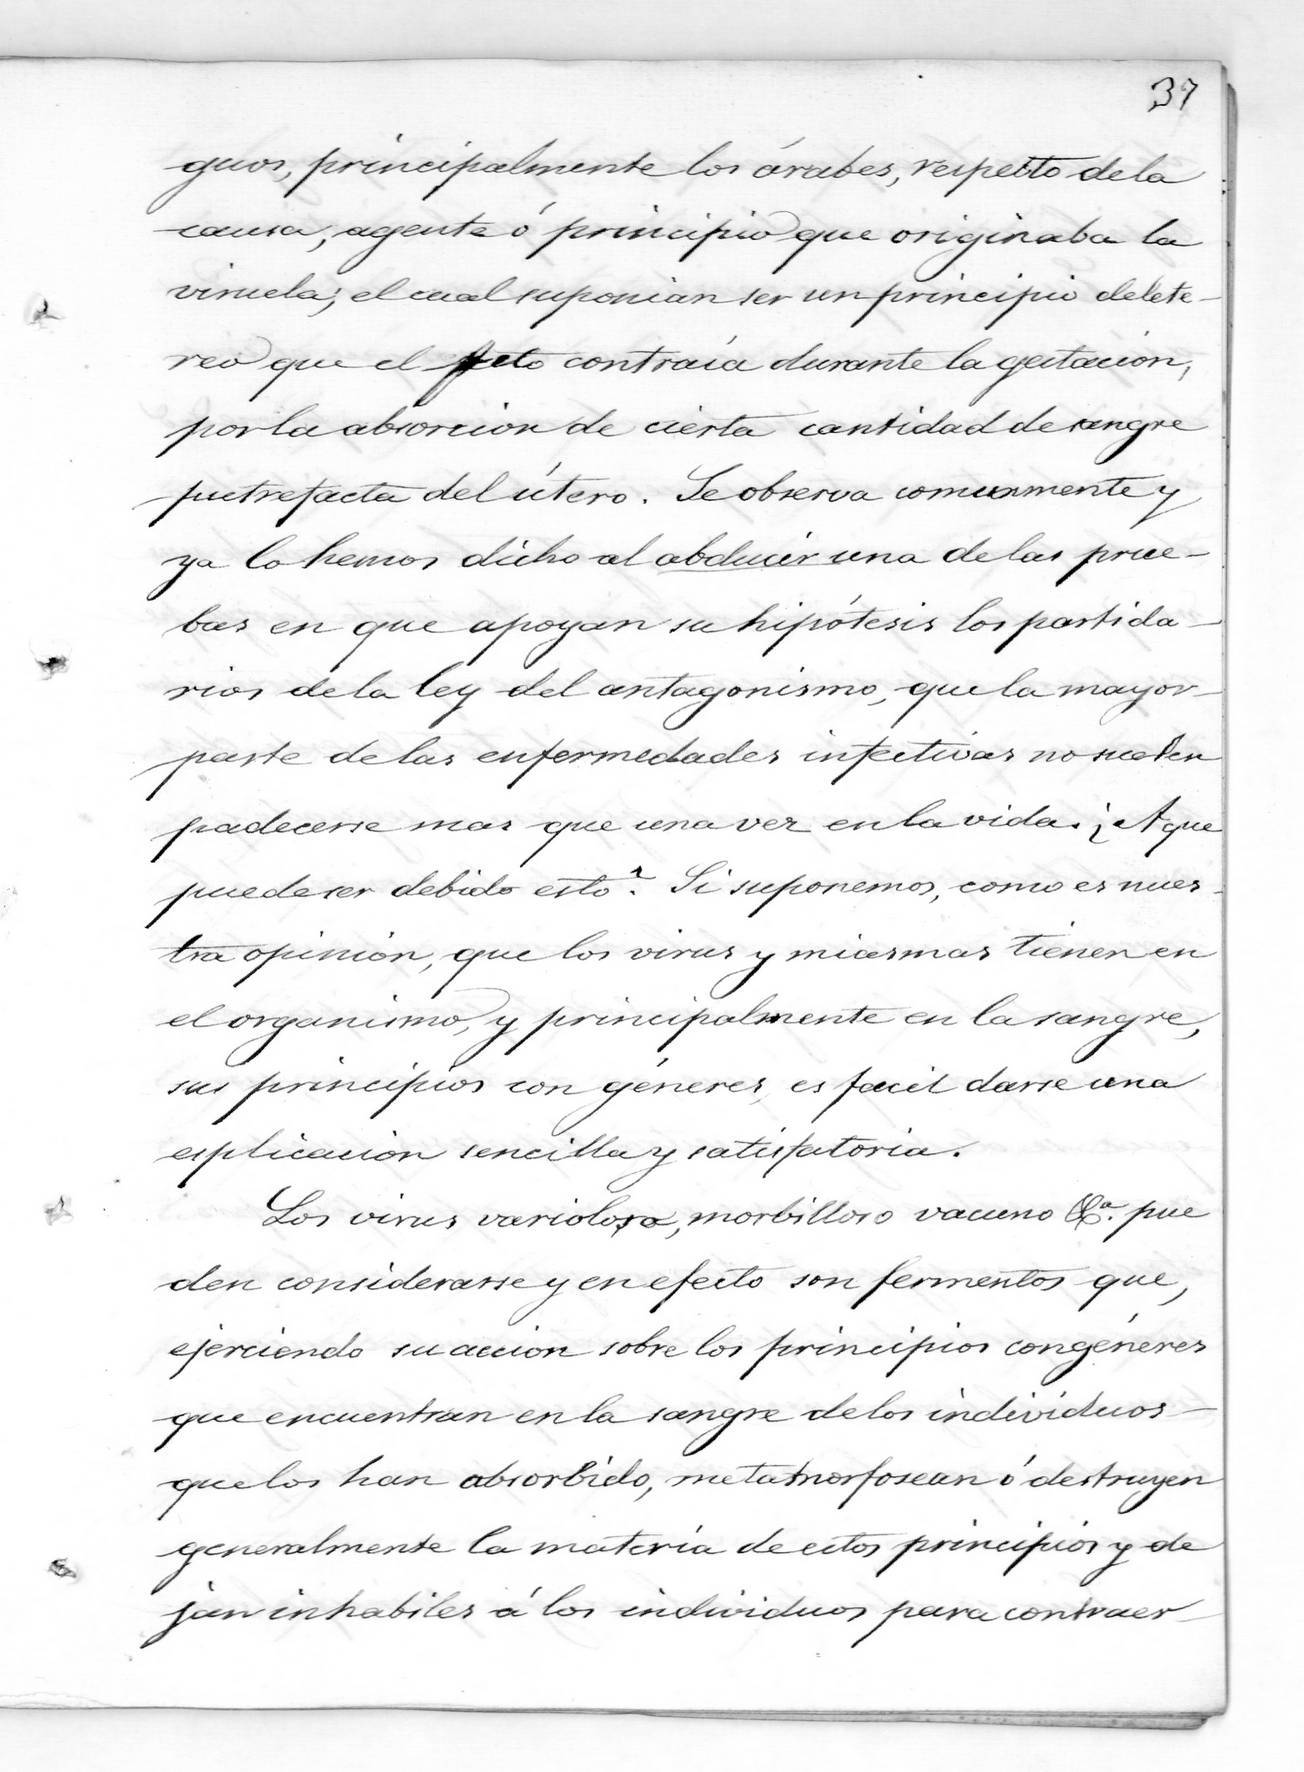 37
guos, principalmente los árabes, respecto de la
causa, agente ó principio que originaba la
viruela; el cual suponian ser un principio delete-
reo que el feto contraía durante la gestacion,
por la absorcion de cierta cantidad de sangre
putrefacta del útero. Se observa comunmente y
ya lo hemos dicho al abducir una de las prue-
bas en que apoyan su hipótesis los partida-
rios de la ley del antagonismo, que la mayor
parte de las enfermedades infectivas no suelen
padecerse mas que una vez en la vida. ¿A que
puede ser debido esto? Si suponemos, como es nues-
tra opinión, que los virus y miasmas tienen en
el organismo, y principalmente en la sangre,
sus principios con géneres, es facil darse una
esplicacion sencilla y satisfatoria.
Los virus varioloso, morbilloso vacuno &a. pue
den considerarse y en efecto son fermentos que,
ejerciendo su accion sobre los principios congéneres
que encuentran en la sangre de los individuos
que los han absorbido, metamorfosean ó destruyen
generalmente la materia de estos principios y de
jan inhabiles á los individuos para contraer